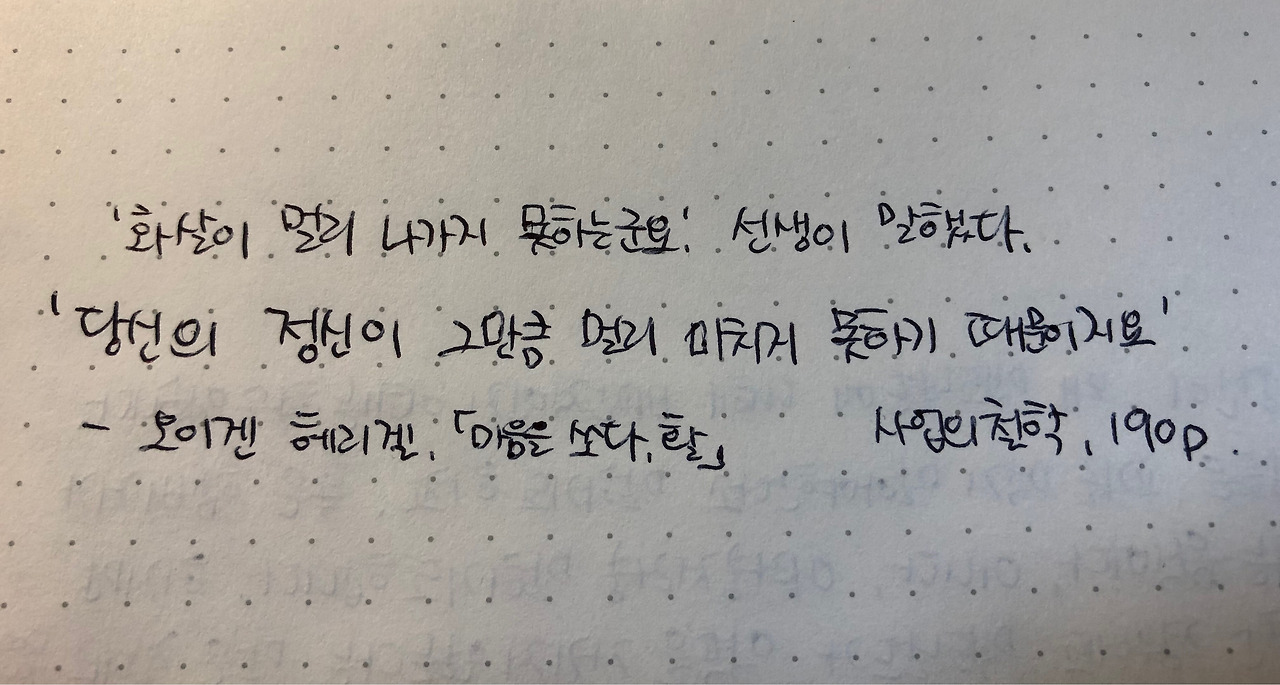 '화살이 멀리 나가지 못하는군요.' 선생이 말했다.
'당신의 정신이 그만큼 멀리 미치지 못하기 때문이지요'
- 오이겐 헤리겔, 「마음을 쏘다, 활」 사업의 철학, 190p.